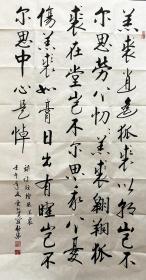 羔裘逍遥狐裘以朝岂不
尔思劳心忉忉羔裘翱翔狐
裘在堂岂不尔思我心忧
傷羔裘如膏日出有曜岂不
尔思中心是悼